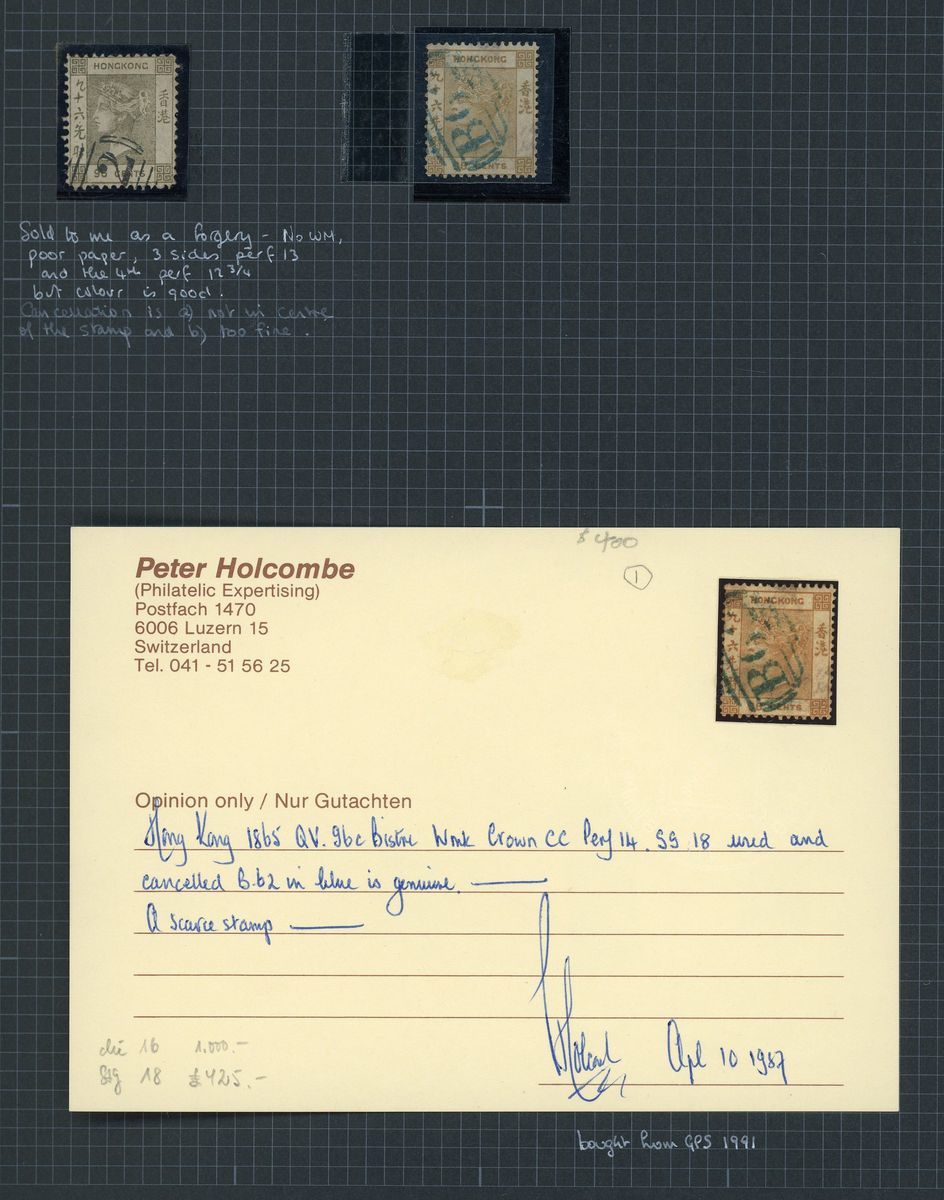 HONGKONG
九十六先時
香港
96 CENTS
HONGKONG
九十六先
香港
B62
CENTS
Sold to me as a forgery - No WM,
poor paper, 3 sides perf 13
and the 4th perf 12 3/4
but colour is good.
Cancellation is a) not in centre
of the stamp and b) too fine.
$ 400
1
Peter Holcombe
(Philatelic Expertising)
Postfach 1470
6006 Luzern 15
Switzerland
Tel. 041 - 51 56 25
HONGKONG
九十六先
香港
B62
CENTS
Opinion only / Nur Gutachten
Hong Kong 1865 QV. 96c Bistre Wmk Crown CC Perf 14. SG 18 used and
cancelled B.62 in blue is genuine.
A scarce stamp
16 1.000.-
Stg 18 £425.-
Apl 10 1987
bought from GPS 1991